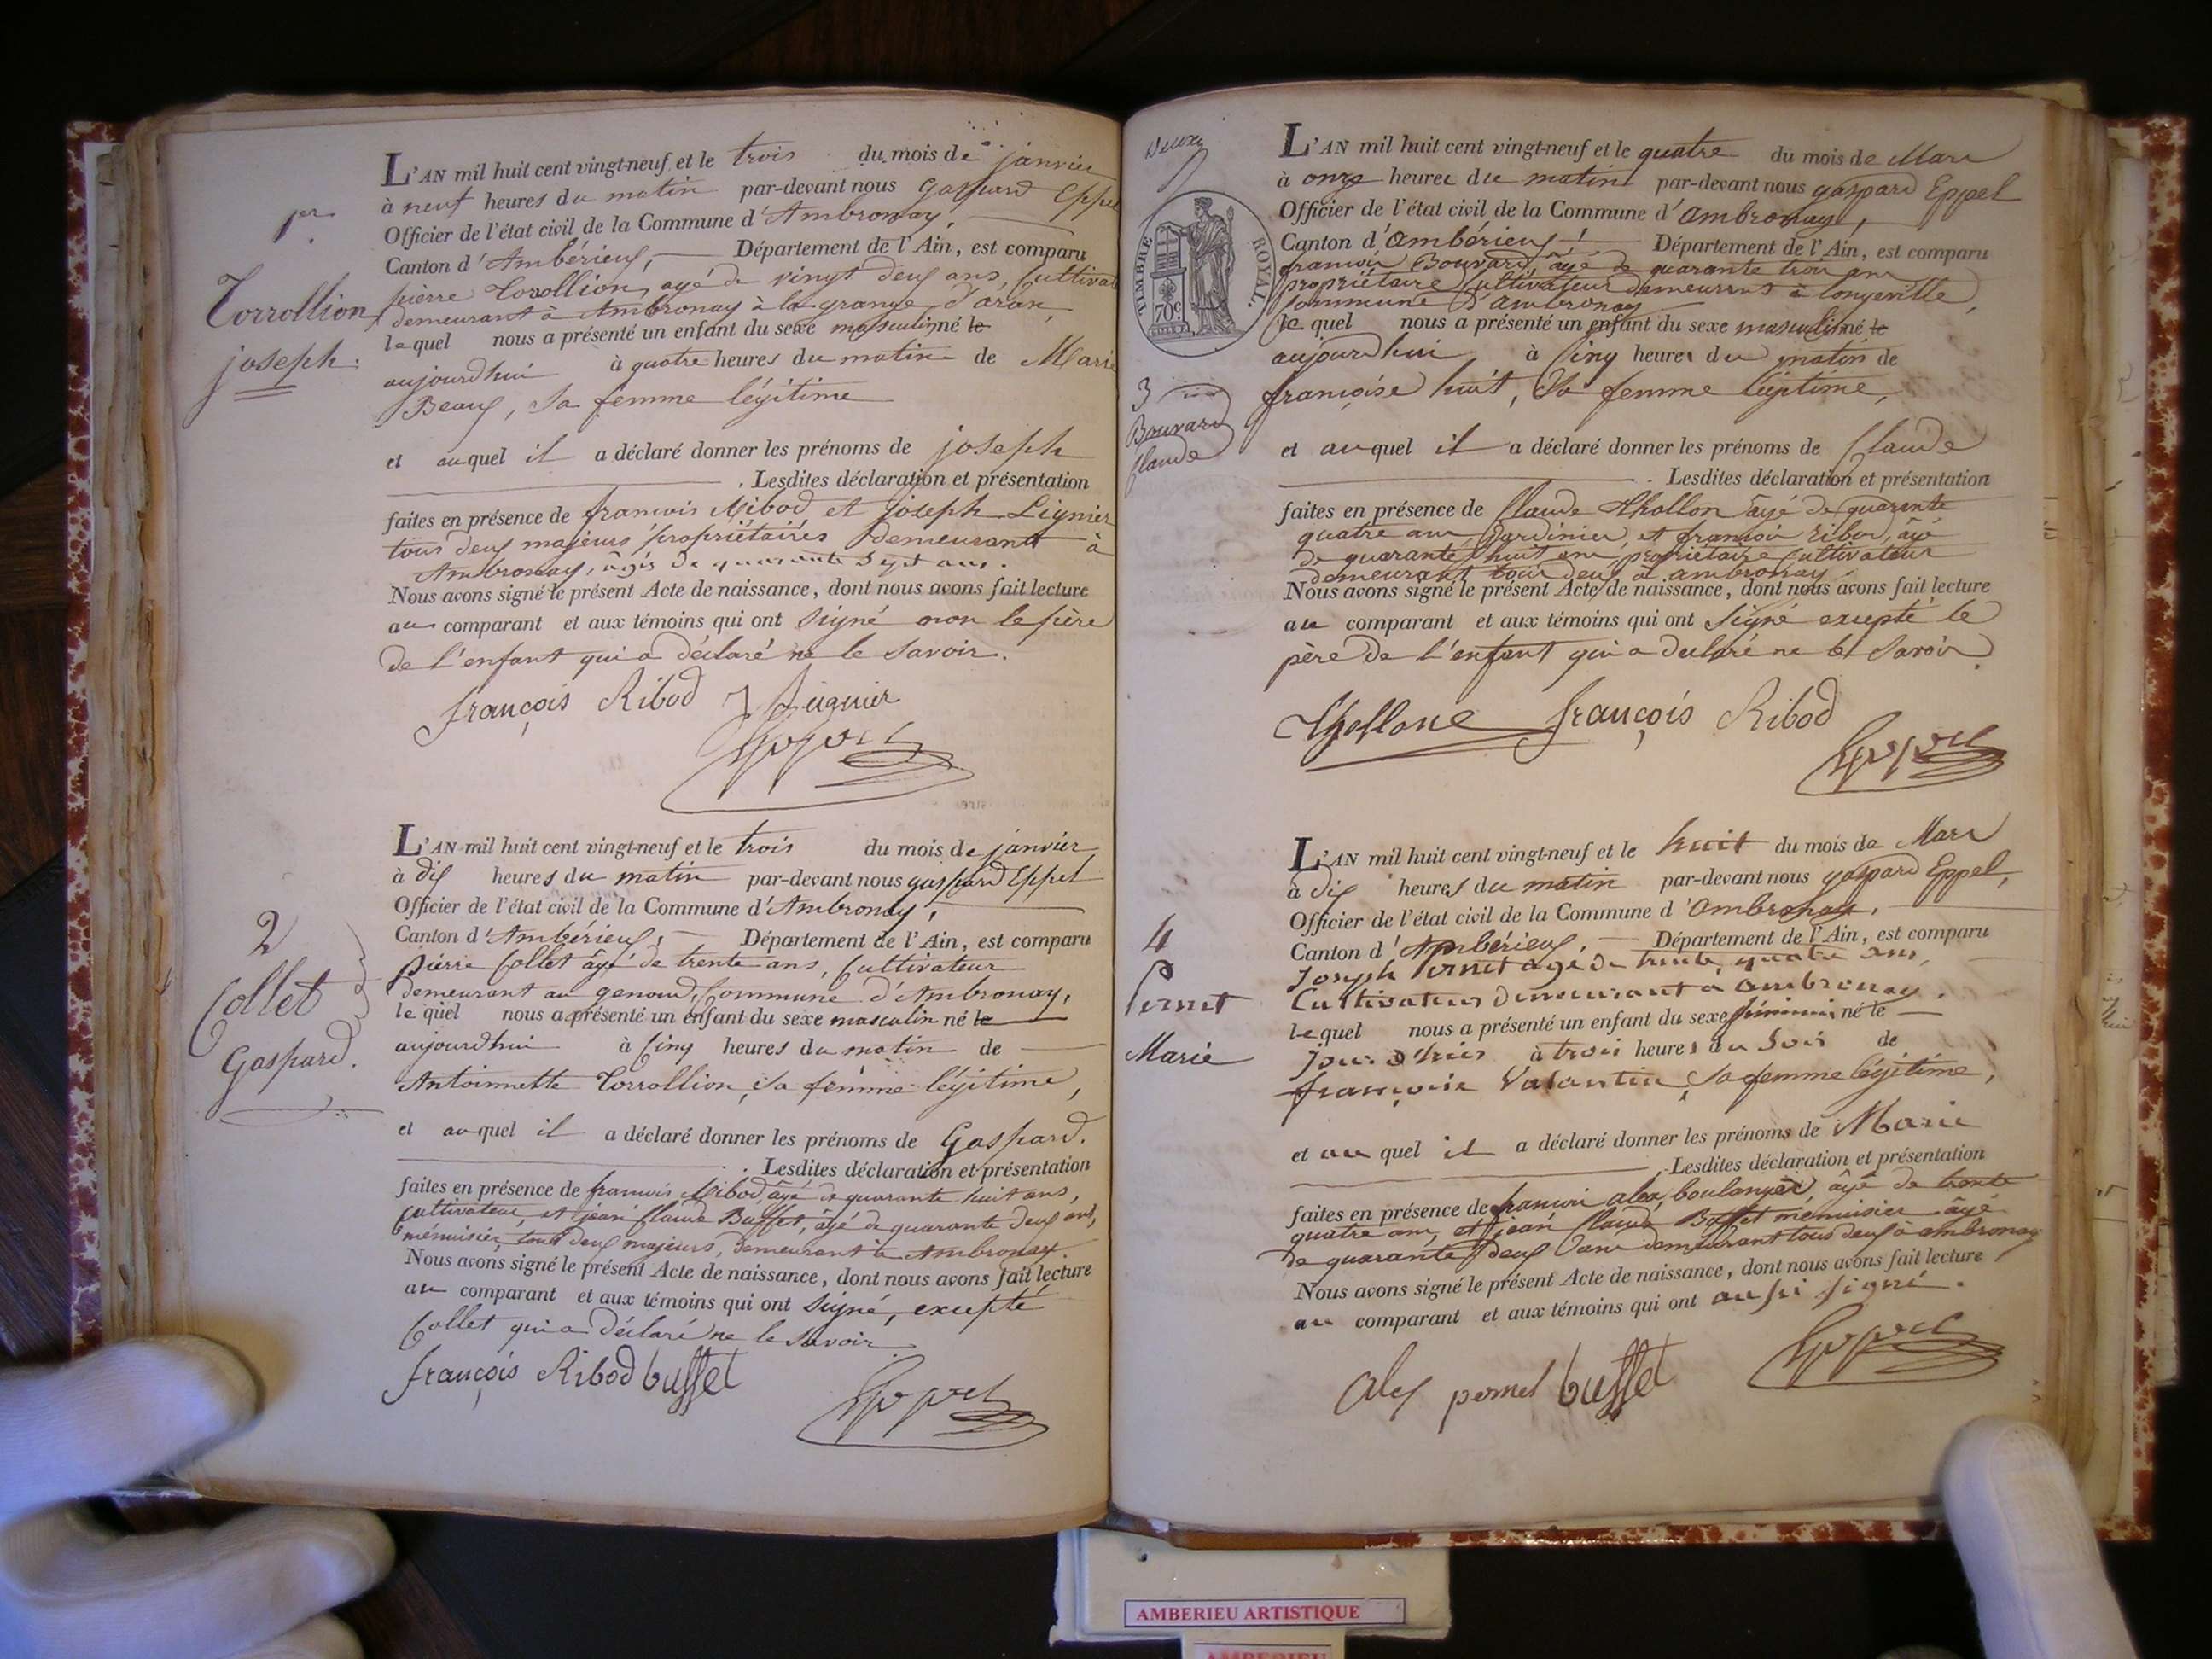 1er
Torrollion
joseph.
L'AN mil huit cent vingt-neuf et le trois du mois de janvier
à neuf heures du matin par-devant nous Gaspard Eppel
Officier de l'état civil de la Commune d'Ambronay,
Canton d'Ambérieux, Département de l'Ain, est comparu
pierre Torollion, agé de vingt deux ans, Cultivat
demeurant à Ambronay à la grange d'
le quel nous a présenté un enfant du sexe masculin né le
aujourdhui à quatre heures du matin de Marie
Beaux, sa femme légitime
et auquel il a déclaré donner les prénoms de joseph
. Lesdites déclaration et présentation
faites en présence de francois Ribod et joseph Lignier
tous deux majeurs propriétaires demeurant à
Ambronay, agés de quarante sept ans.
Nous avons signé le présent Acte de naissance, dont nous avons fait lecture
au comparant et aux témoins qui ont signé non le père
de l'enfant qui a déclaré ne le savoir.
françois Ribod J Luiguier
Eppel
2
Collet
Gaspard.
L'AN mil huit cent vingt-neuf et le trois du mois de janvier
à dix heures du matin par-devant nous gaspard Eppel
Officier de l'état civil de la Commune d'Ambronay,
Canton d'Ambérieux, Département de l'Ain, est comparu
pierre Collet âgé de trente ans, Cultivateur
demeurant au genoud, Commune d'Ambronay,
le quel nous a présenté un enfant du sexe masculin né le
aujourdhui à cinq heures du matin de
Antoinnette Torrollion, sa femme légitime,
et auquel il a déclaré donner les prénoms de Gaspard.
. Lesdites déclaration et présentation
faites en présence de francois Ribod, âgé de quarante huit ans,
Cultivateur, et jean Claude Buffet, âgé de quarante deux ans,
ménuisier, tous deux majeurs, demeurant à Ambronay.
Nous avons signé le présent Acte de naissance, dont nous avons fait lecture
au comparant et aux témoins qui ont signé, excepté
Collet qui a déclaré ne le savoir
françois Ribod buffet
Eppel
Deux
TIMBRE ROYAL.
70c.
3
Bouvard
Claude
L'AN mil huit cent vingt-neuf et le quatre du mois de Mars
à onze heures du matin par-devant nous gaspard Eppel
Officier de l'état civil de la Commune d'ambronay,
Canton d'ambérieux, Département de l'Ain, est comparu
francois Bouvard âgé de quarante trois ans
propriétaire Cultivateur demeurant à longeville,
Commune d'ambronay
le quel nous a présenté un enfant du sexe masculin né le
aujourdhui à cinq heures du matin de
françoise huit, sa femme légitime,
et auquel il a déclaré donner les prénoms de Claude
. Lesdites déclaration et présentation
faites en présence de Claude Thollon âgé de quarente
quatre ans, jardinier, et francois Ribod, âgé
de quarante huit ans propriétaire Cultivateur
demeurant tous deux à ambronay.
Nous avons signé le présent Acte de naissance, dont nous avons fait lecture
au comparant et aux témoins qui ont signé excepté le
père de l'enfant qui a declaré ne le savoir.
Thollone françois Ribod
Eppel
4
Pernet
Marie
L'AN mil huit cent vingt-neuf et le huit du mois de Mars
à dix heures du matin par-devant nous gaspard Eppel,
Officier de l'état civil de la Commune d'ambronay,
Canton d'Ambérieux, Département de l'Ain, est comparu
Joseph Pernet age de trente quatre ans,
Cultivateur demeurant a ambronay.
le quel nous a présenté un enfant du sexe féminin né le
jour d'hier à trois heures du soir de
françoise Valantin, sa femme légitime,
et au quel il a déclaré donner les prénoms de Marie
. Lesdites déclaration et présentation
faites en présence de francois alex, boulanger, âgé de trente
quatre ans, et jean Claude Buffet ménuisier âgé
de quarante deux ans demeurant tous deux à ambronay
Nous avons signé le présent Acte de naissance, dont nous avons fait lecture
au comparant et aux témoins qui ont aussi signé.
alex pernet buffet
Eppel
AMBERIEU ARTISTIQUE
AMBERIEU